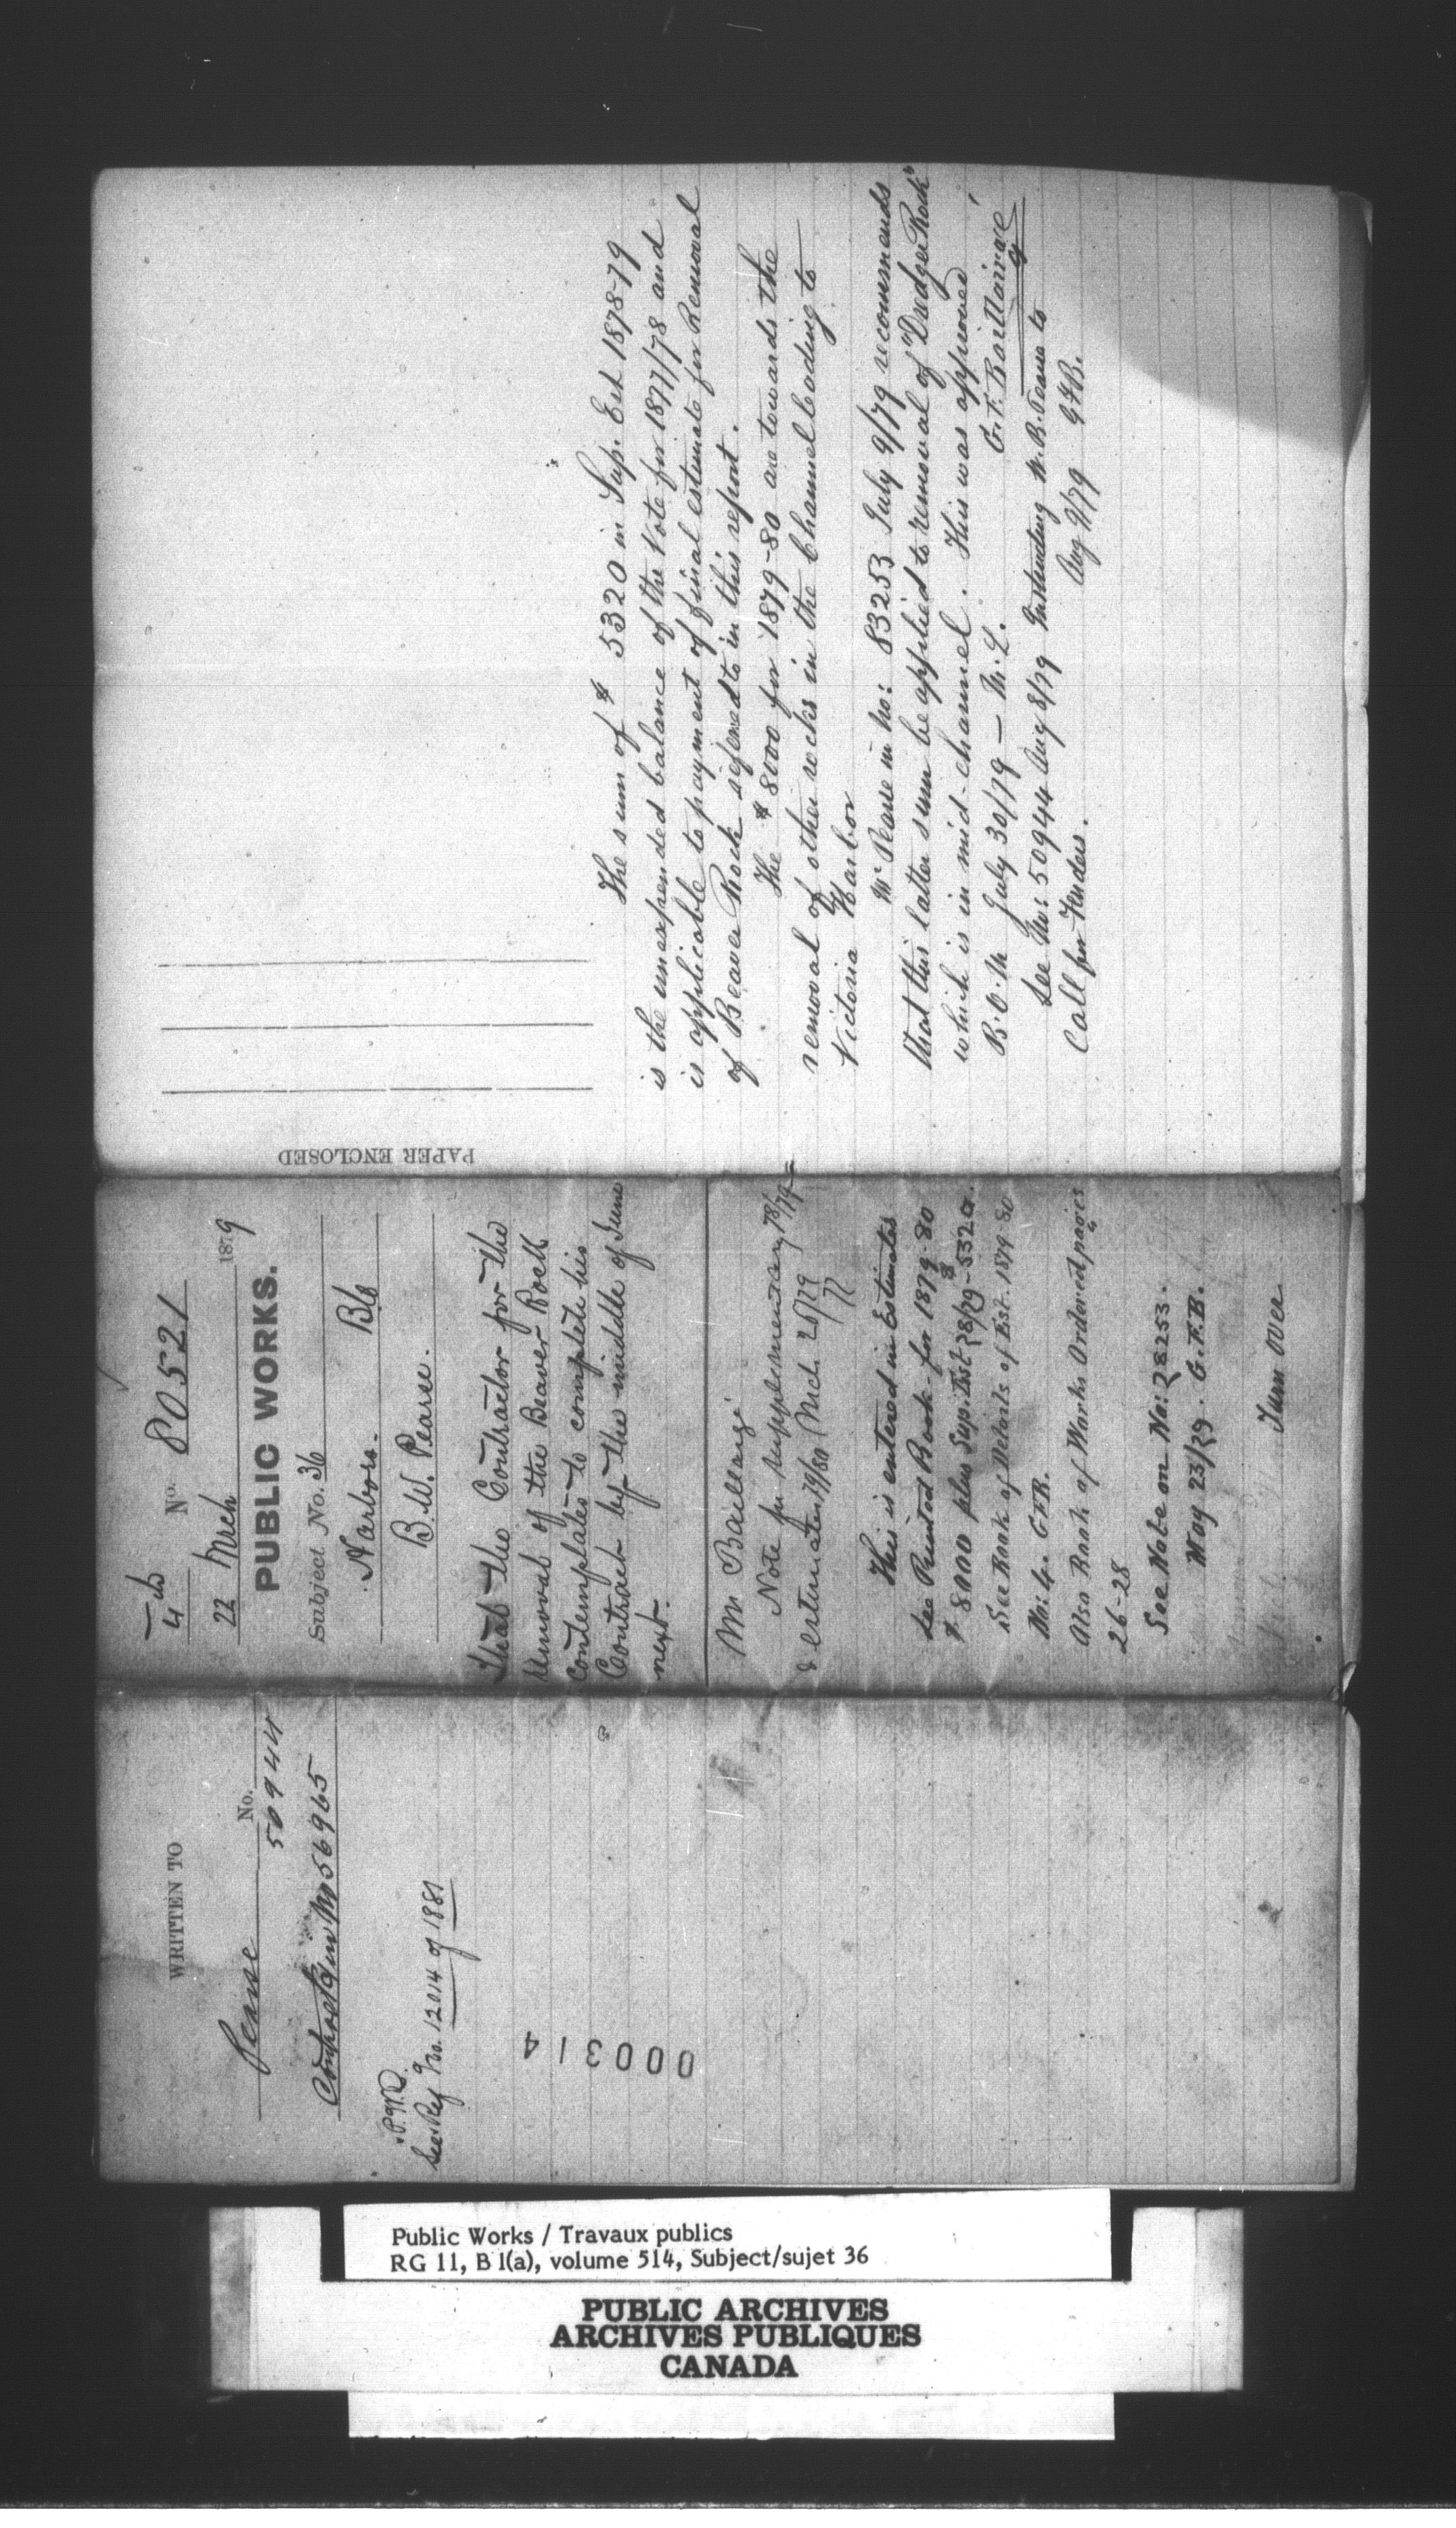 WRITTEN TO
No.
Pearse 50944
Contract in No 56965
P.W.D.
See Ref No. 12014 of 1881
000314
4th No. 80521
22 Mrch 1879
PUBLIC WORKS.
Subject No. 36
Harbors. B.C.
B. W. Pearse.
That the Contractor for the
removal of the Beaver Rock
contemplates to complete his
Contract by the middle of June
next.
Mr Baillairgé
Note for supplementary 78/79
& estimates 79/80 Mch 26/79
This is entered in Estimates
See Printed Book for 1879-80
$8000 plus Sup. Est 78/79 - $5320.
See Book of Details of Est. 1879-80
No: 4. GFB.
Also Book of Works Ordered pages
26-28
See Note on No: 28253.
May 23/79. G.F.B.
Turn over
PAPER ENCLOSED
The sum of $5320 in Sup. Est 1878-79
is the unexpended balance of the Vote for 1877/78 and
is applicable to payment of final estimate for Removal
of Beaver Rock referred to in this report.
The $8000 for 1879-80 are towards the
removal of other rocks in the Channel leading to
Victoria Harbor
Mr Pearse in No: 83253 July 9/79 recommends
that this latter sum be applied to removal of "Dredger Rock"
which is in mid-channel. This was approved
B.O.M July 30/79 — M.L. G. F. Baillairgé
See No: 50944 Aug 8/79 Instructing M. B. Pearse to
Call for Tenders. Aug 9/79 GFB.
Public Works / Travaux publics
RG 11, B 1(a), volume 514, Subject/sujet 36
PUBLIC ARCHIVES
ARCHIVES PUBLIQUES
CANADA